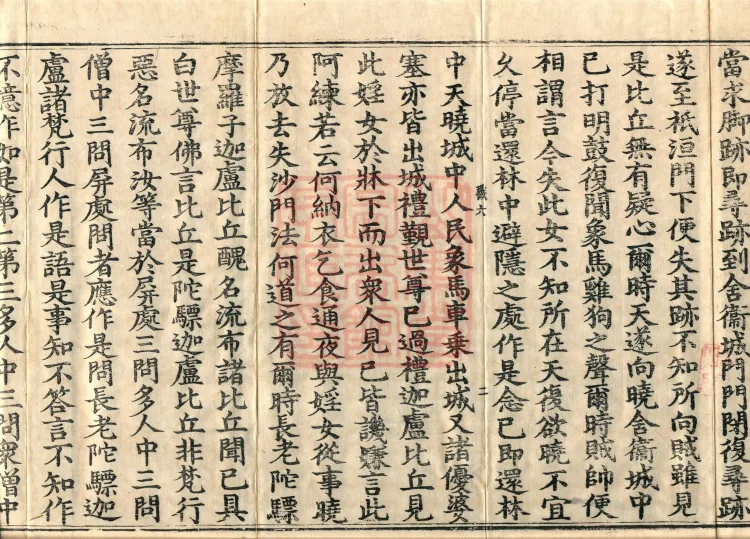 當求脚跡即尋跡到舍衞城門門閉復尋跡
遂至祇洹門下便失其跡不知所向賊雖見
是比丘無有疑心爾時天遂向曉舍衞城中
已打明鼓復聞象馬雞狗之聲爾時賊師便
相謂言今失此女不知所在天復欲曉不宜
久停當還林中避隱之處作是念已即還林
職六 二
中天曉城中人民象馬車乗出城又諸優婆
塞亦皆出城禮覲世尊已過禮迦盧比丘見
此婬女於牀下而出衆人見已皆譏嫌言此
阿練若云何納衣乞食通夜與婬女從事曉
乃放去失沙門法何道之有爾時長老陀驃
摩羅子迦盧比丘醜名流布諸比丘聞已具
白世尊佛言比丘是陀驃迦盧比丘非梵行
惡名流布汝等當於屏處三問多人中三問
僧中三問屏處問者應作是問長老陀驃迦
盧諸梵行人作是語是事知不答言不知作
不憶作如是第二第三多人中三問衆僧中